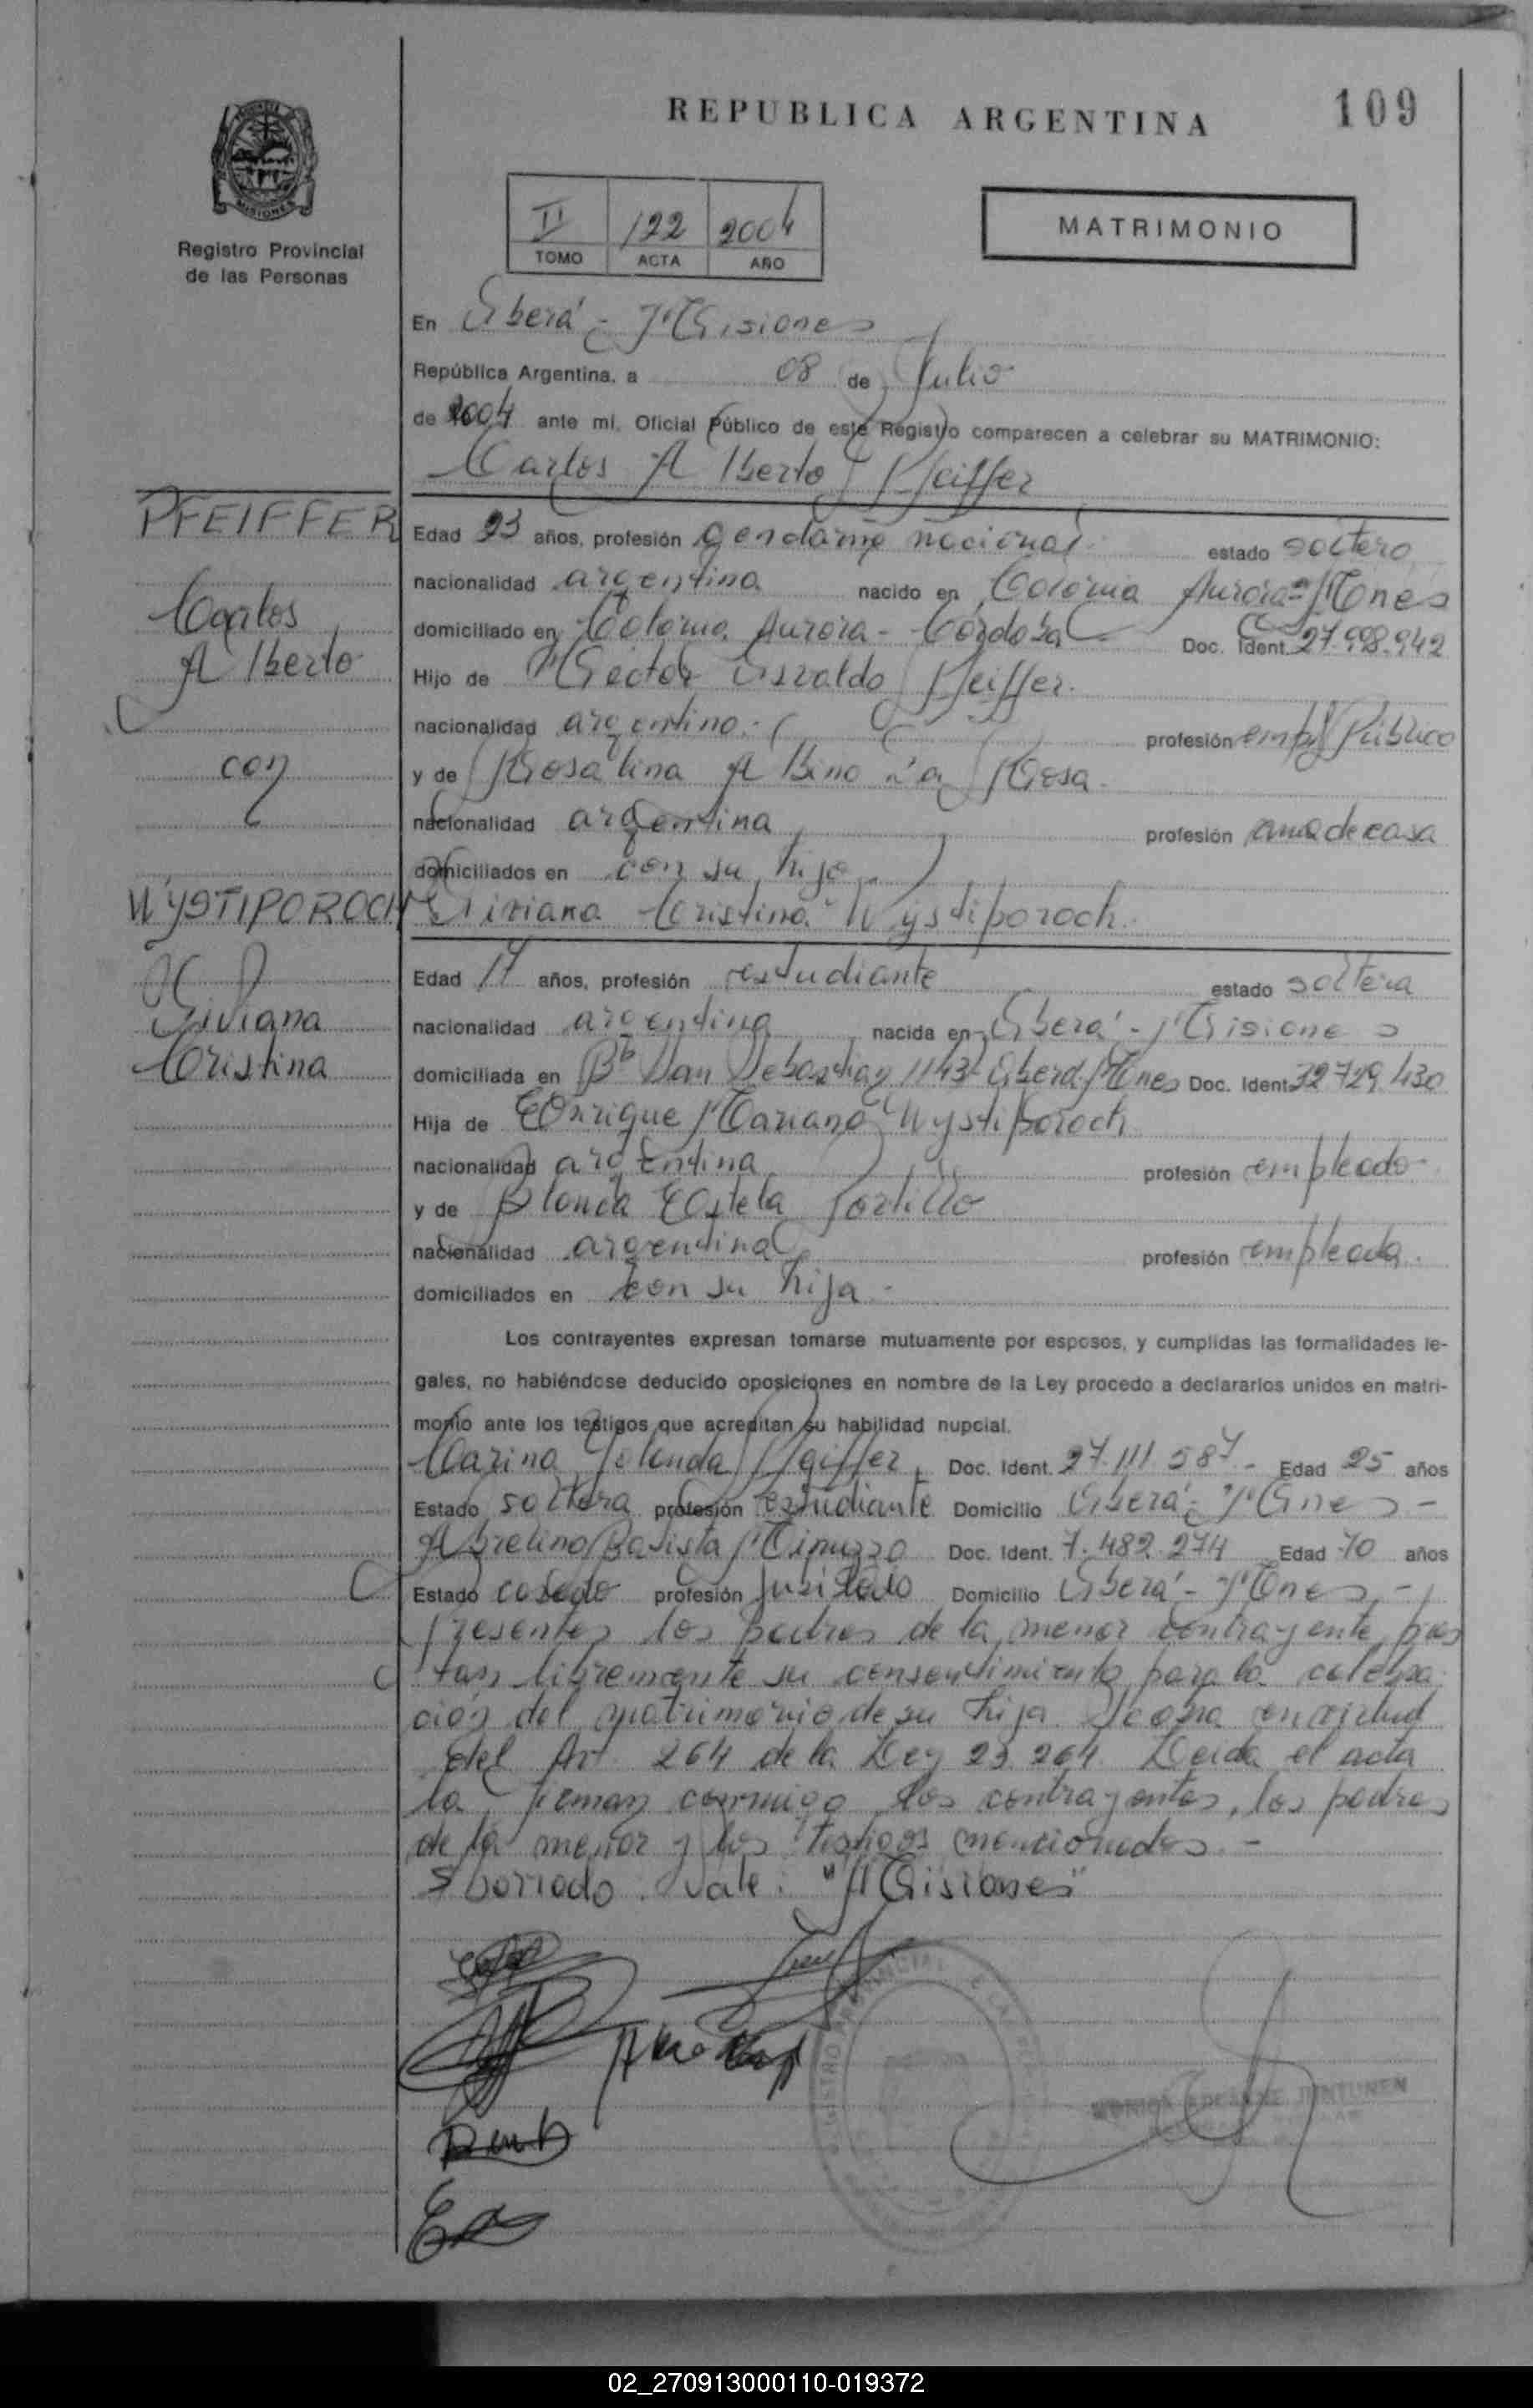 REPUBLICA ARGENTINA
109
MISIONES
Registro Provincial
de las Personas
II 122 2004
TOMO ACTA AÑO
MATRIMONIO
En Oberá - Misiones
República Argentina, a 08 de Julio
de 2004 ante mí, Oficial Público de este Registro comparecen a celebrar su MATRIMONIO:
Carlos Alberto Pfeiffer
PFEIFFER
Carlos
Alberto
con
WYSTIPOROCH
Viviana
Cristina
Edad 23 años, profesión gendarme nacional estado soltero
nacionalidad argentina nacido en Colonia Aurora - Mnes
domiciliado en Colonia Aurora - Córdoba Doc. Ident. 27.998.942
Hijo de Héctor Osvaldo Pfeiffer.
nacionalidad argentino. profesión empl Público
y de Rosalina Albino Da Rosa.
nacionalidad argentina profesión ama de casa
domiciliados en con su hijo
Viviana Cristina Wystiporoch.
Edad 17 años, profesión estudiante estado soltera
nacionalidad argentina nacida en Oberá - Misiones
domiciliada en Bº San Sebastian 1143 Oberá Mnes Doc. Ident. 32729.430
Hija de Enrique Mariano Wystiporoch
nacionalidad argentina profesión empleado
y de Blanca Estela Portillo
nacionalidad argentina profesión empleada.
domiciliados en con su hija -
Los contrayentes expresan tomarse mutuamente por esposos, y cumplidas las formalidades le-
gales, no habiéndose deducido oposiciones en nombre de la Ley procedo a declararlos unidos en matri-
monio ante los testigos que acreditan su habilidad nupcial.
Marina Yolanda Pfeiffer Doc. Ident. 27.111.587 - Edad 25 años
Estado soltera profesión estudiante Domicilio Oberá - Mnes -
Batista Doc. Ident. 7.482.274 Edad 70 años
Estado casado profesión Jubilado Domicilio Oberá - Mnes -
Presentes los padres de la menor contrayente, pres
tan libremente su consentimiento para la celebra
ción del matrimonio de su hija. Se obra en virtud
del Art. 264 de la Ley 23.264. Leida el acta
la firman conmigo los contrayentes, los padres
de la menor y los testigos mencionados. -
S borrado. Vale: "Misiones"
02_270913000110-019372